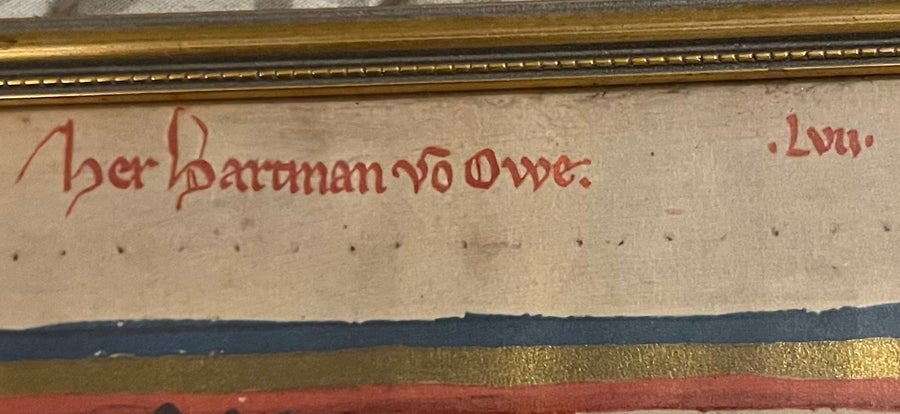 her hartman võ Owe.
.Lvii.